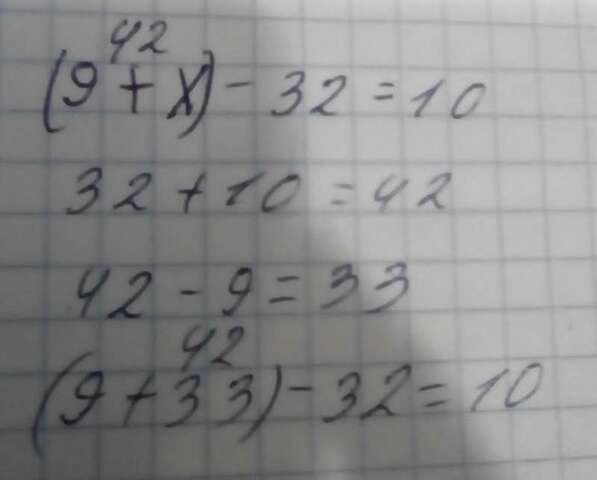 42
(9+x)-32=10
32+10=42
42-9=33
42
(9+33)-32=10